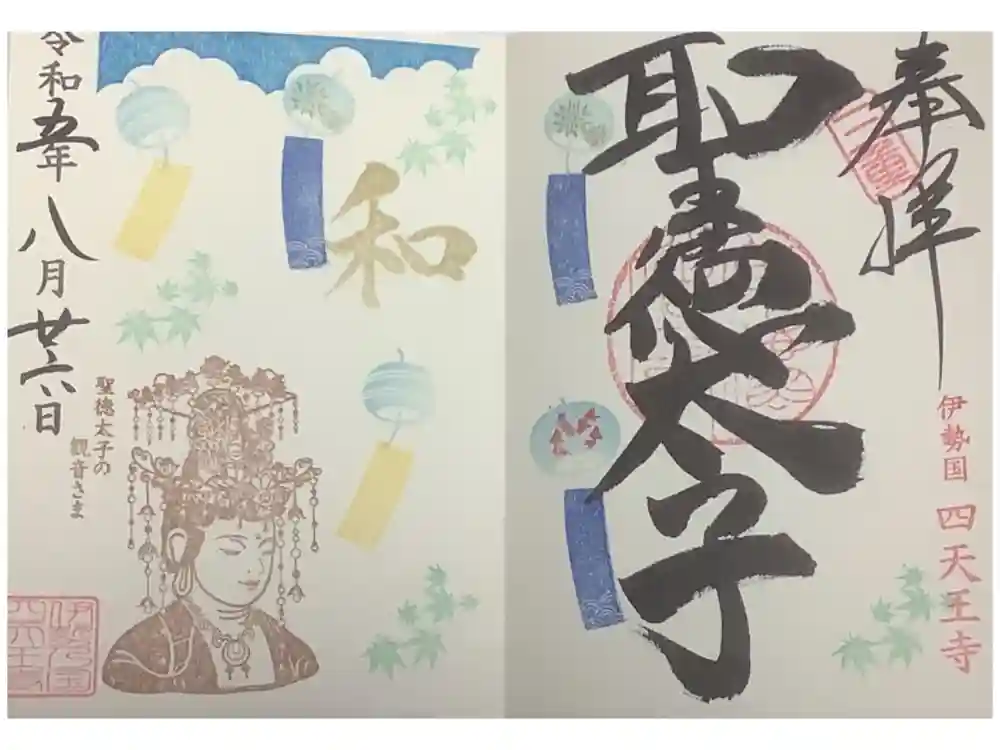 奉拝
聖徳太子
伊勢国 四天王寺
和
聖徳太子の
観音さま
令和五年 八月 廿六日